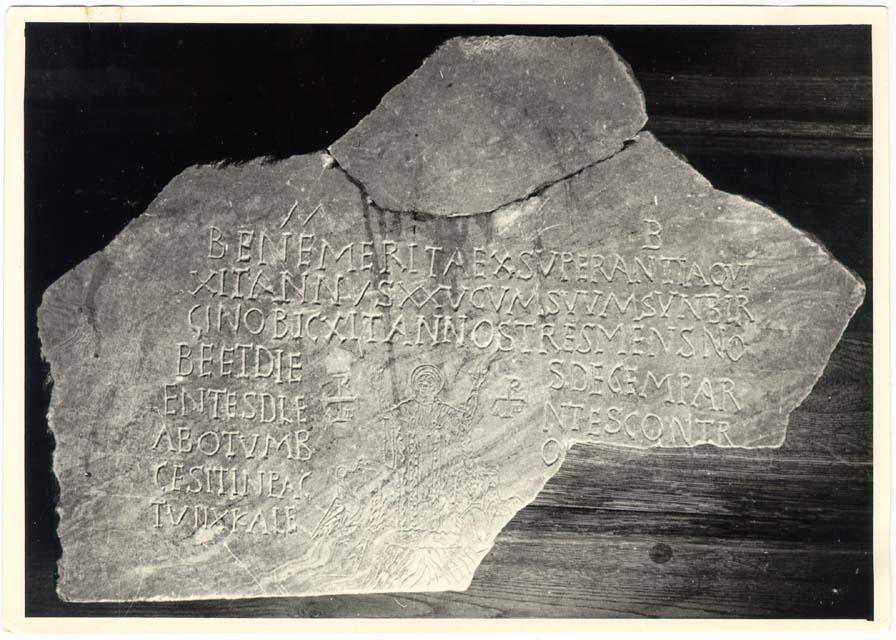 B M
BENEMERITAEXSUPERANTIAQUI
XITANNUSXXUCUMSUUMSUNBIR
GINOBICXITANNOSTRESMENSNO
BEETDIE SDECEMPAR
ENTESDLE NTESCONTR
ABOTUMB O
CESITINPAC
TUIIXKALE